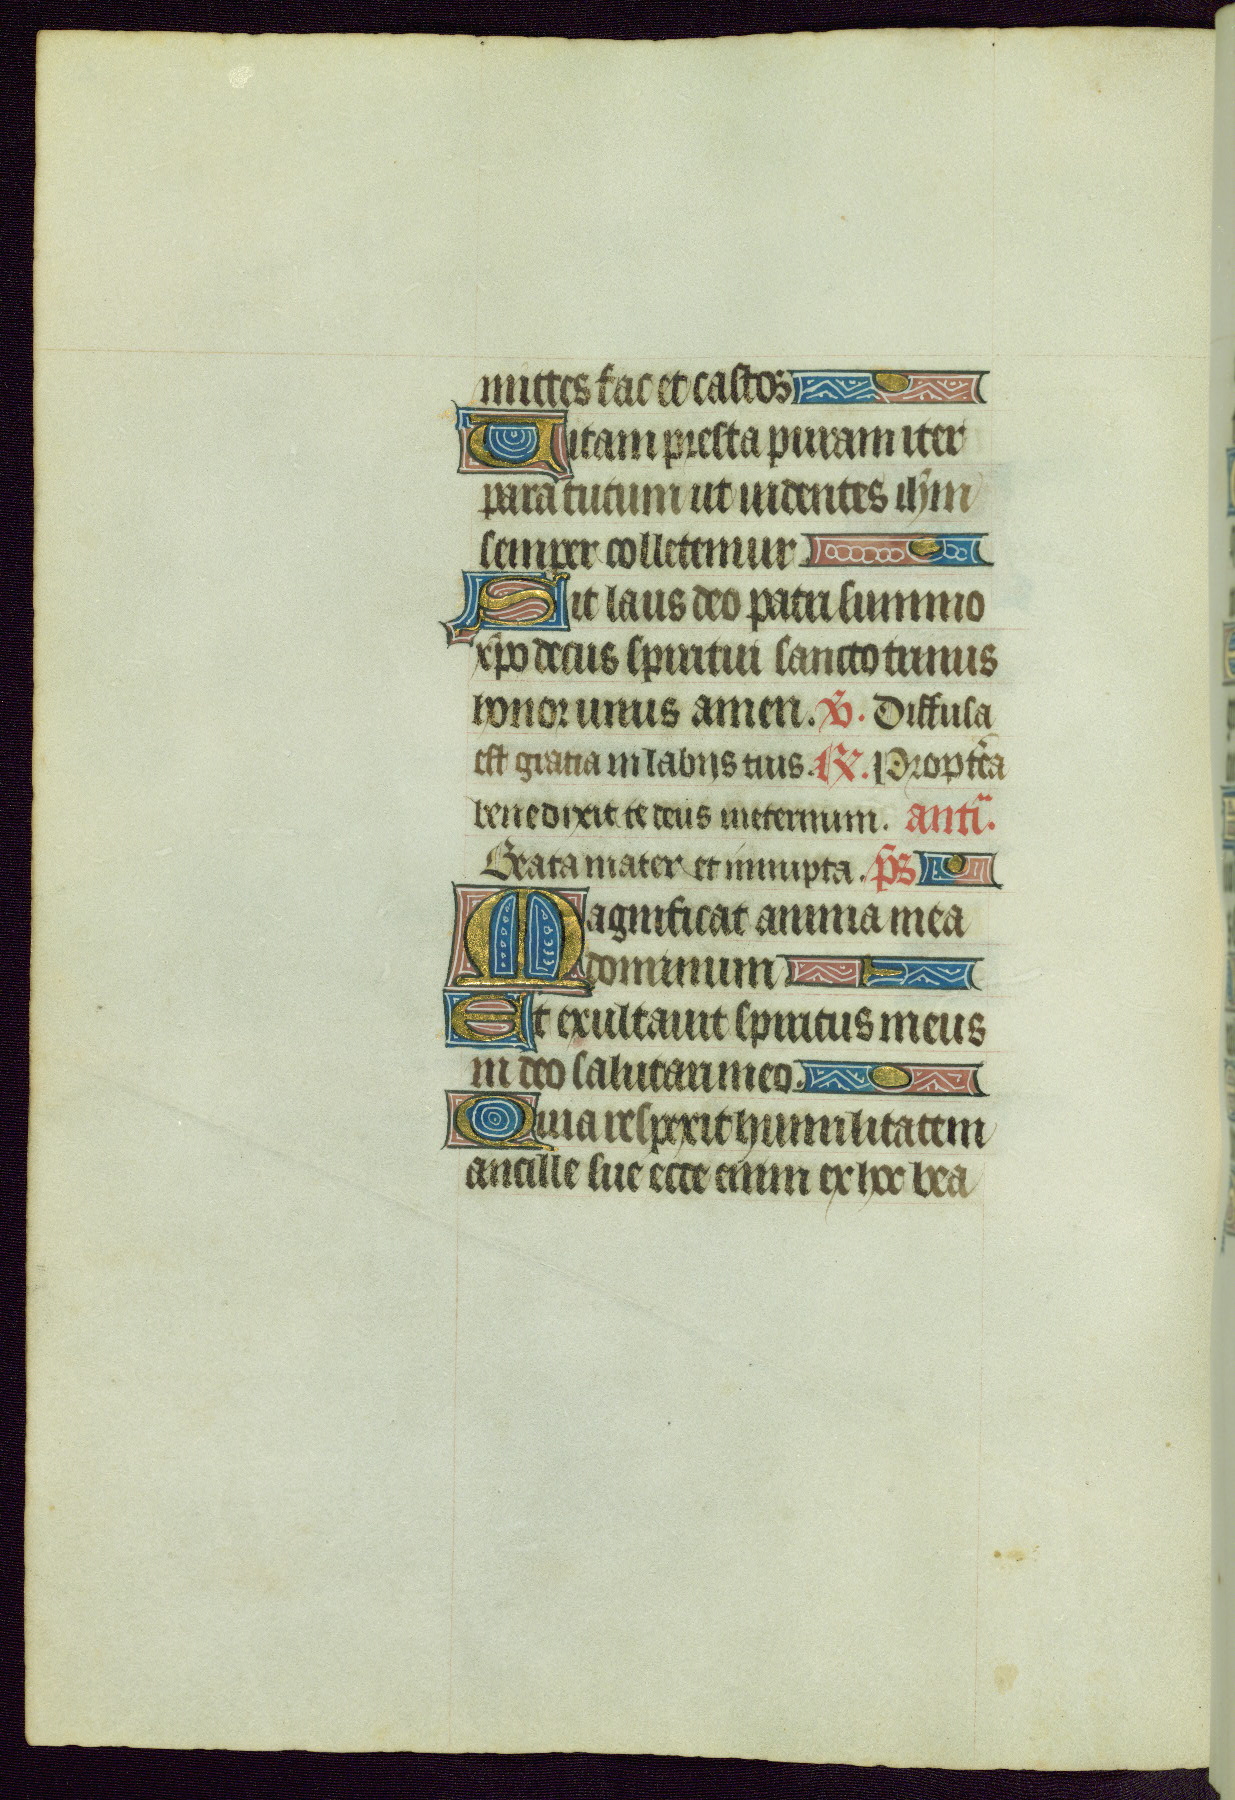 mittes fac et castos
Uitam presta puram iter
para tutum ut uidentes ihm̄
semper colletemur
Sit laus deo patri summo
xp̄o decus spiritui sancto trinus
honor unus amen. v̄. Diffusa
est gratia in labijs tuis. R̄. Propt̄ea
benedixit te deus ineternum. anti̅.
Beata mater et innupta. p̄s
Magnificat anima mea
dominum
Et exultauit spiritus meus
in deo salutari meo.
Quia respexit humilitatem
ancille sue ecce enim ex hoc bea